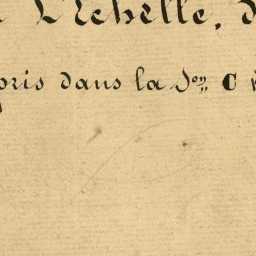 L'Echelle, d
pris dans la Son C